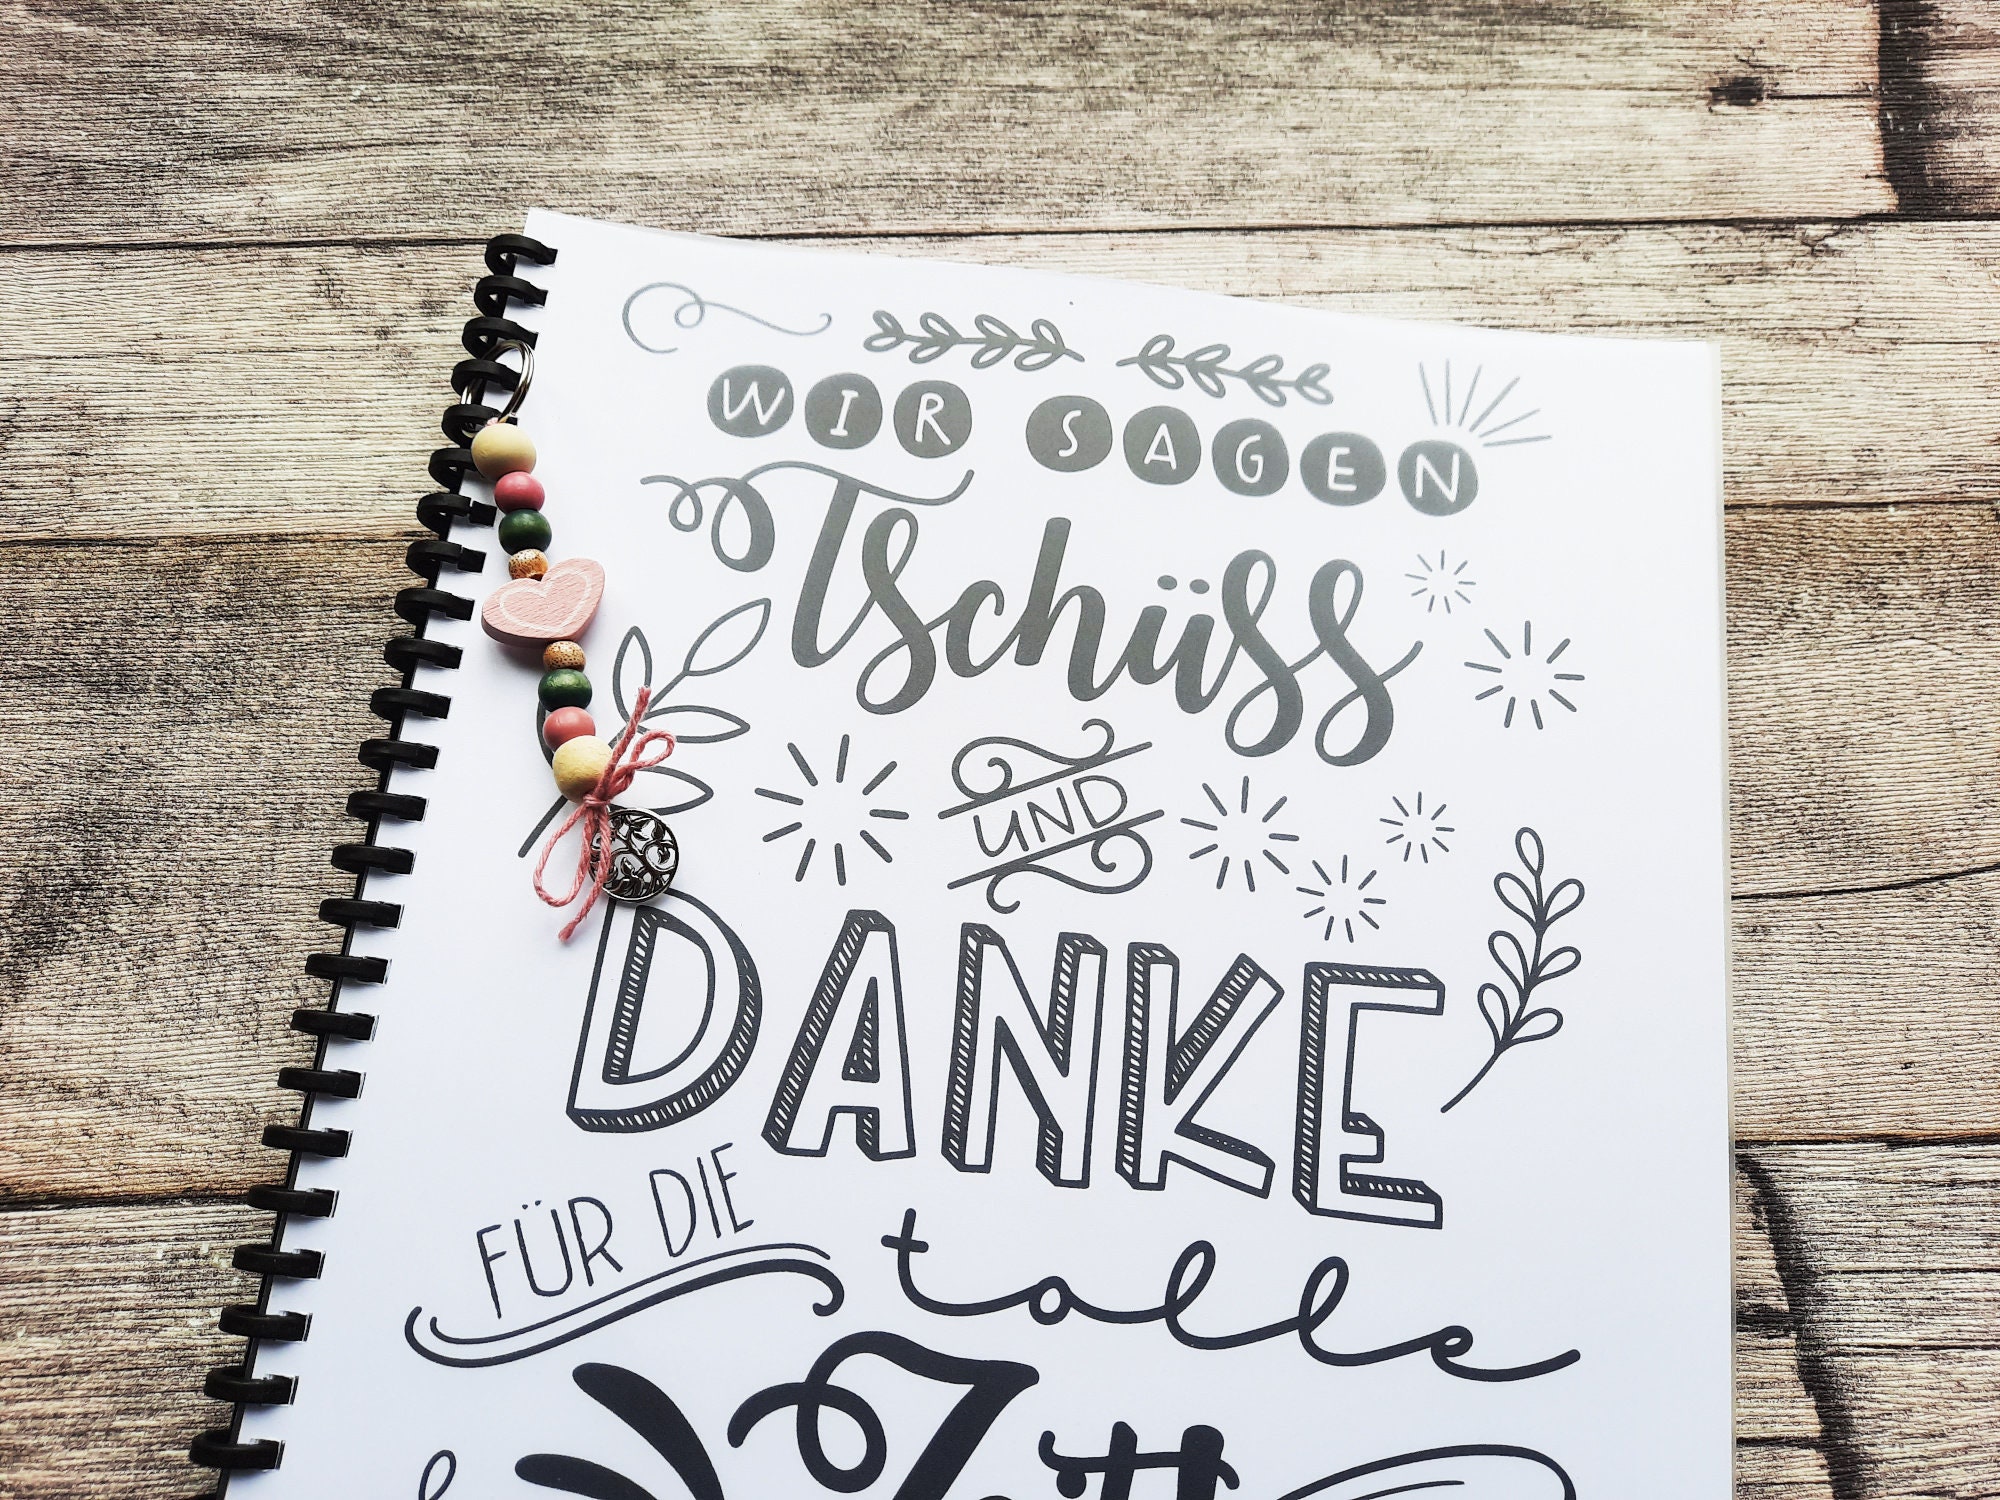 WIR SAGEN
Tschüss
UND
DANKE
FÜR DIE
tolle